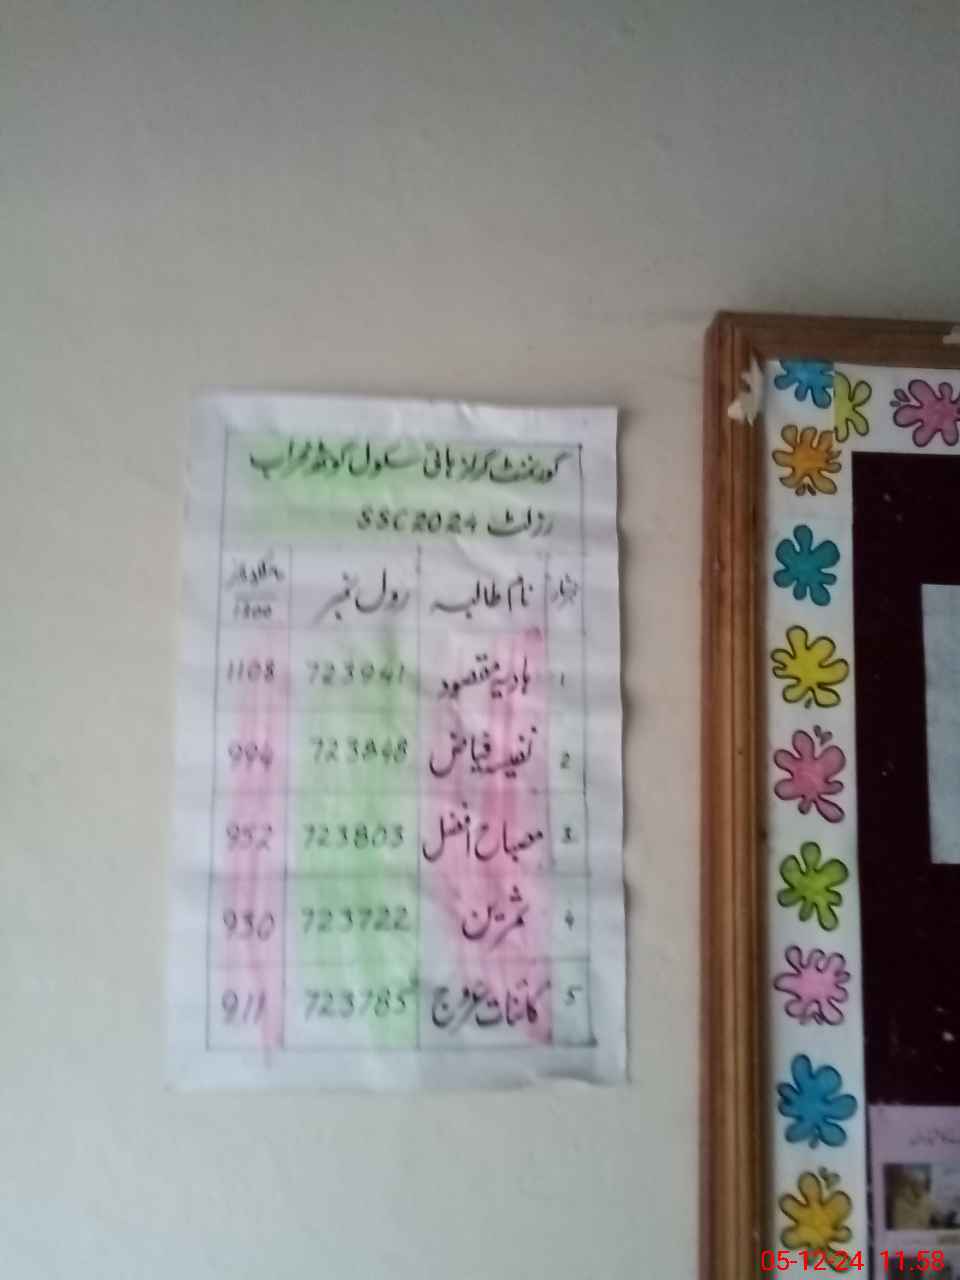 گورنمنٹ گرلز ہائی سکول کوٹھ محراب
رزلٹ SSC 2024
نام طالبہ رول نمبر
1 ہادیہ مقصود 723941 1108
2 نفیسہ فیاض 723848 994
3 مصباح افضل 723803 952
4 ثمرین 723722 930
5 کائنات عروج 723785 911
05-12-24 11.58